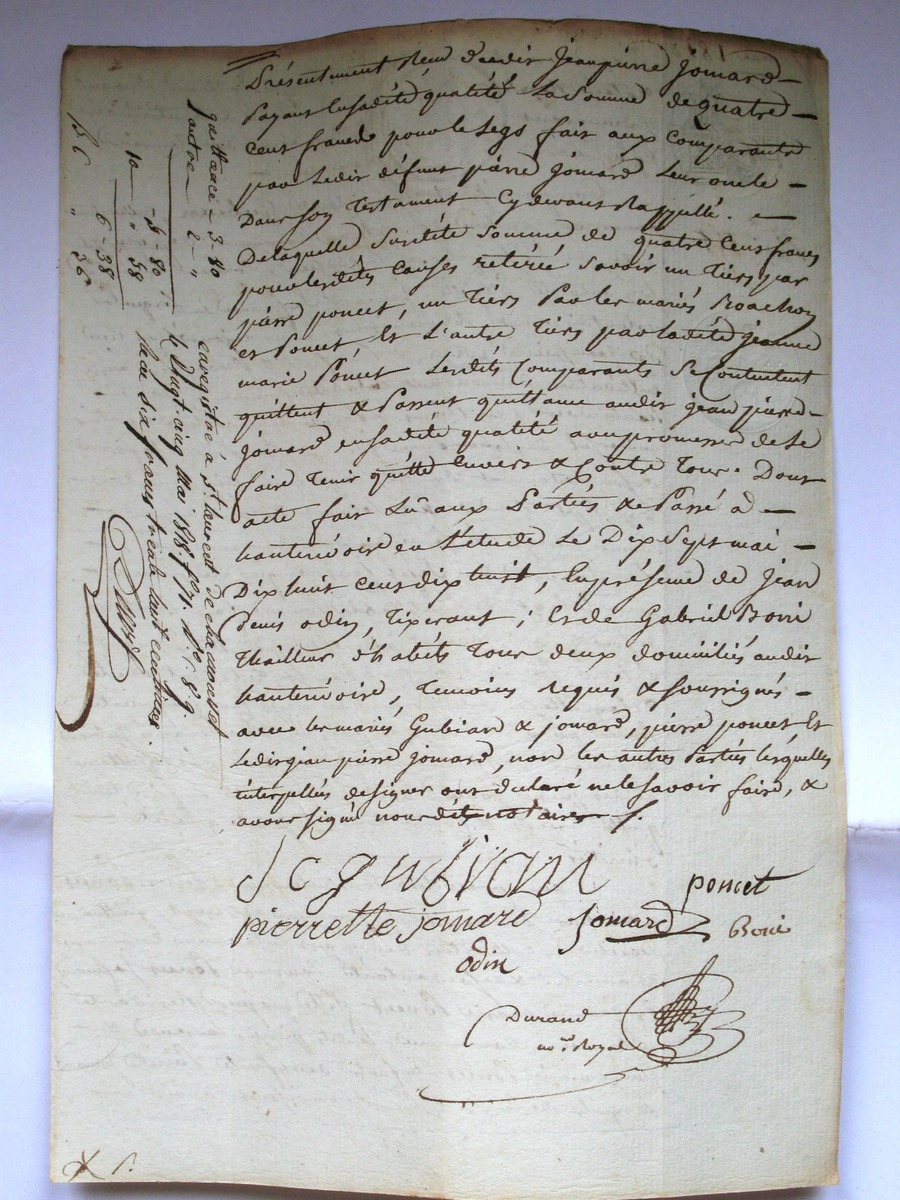 Présentement Reçu dudit Jeanpierre Jomard
Payant Ensadite qualité La Somme de quatre
Cent francs pour le Legs fait aux Comparants
par Ledit défunt pierre Jomard Leur oncle
Dans son Testament Cydevant Rappellé.
De laquelle Susdite Somme de quatre Cent francs
pour lesdites Causes retirée Savoir un Tiers par
pierre poncet, un Tiers Par les mariés Roachon
et Poncet, Et L'autre Tiers par ladite Jeanne
marie Poncet Lesdits Comparants Se Contentent
quittent & Passent quittance audit jean pierre
Jomard ensadite qualité avec promesse de Le
faire Tenir quitte Envers & Contre Tous. Dont
acte fait Lû aux Parties & Passé à
hauterivoire en L'étude Le Dix Sept mai
Dix huit Cent dix huit, En présence de Jean
Denis odin, Tixerant; Et de Gabriel Boni
Thailleur d'habits Tous deux domiciliés audit
hauterivoire, Temoins requis & Soussignés
avec les mariés Gubian & jomard, pierre poncet Et
Ledit jean pierre Jomard, non les autres Parties lesquelles
interpellées de signer ont declaré ne le savoir faire, &
avons signé nousdit notaire
J C gubian
poncet
pierrette jomard Jomard Boni
odin
Durand
no.re Royal
quittance 3 - 80
1 autre 2 - "
- 5 - 80
10 " 58
6 - 38
B C " 36
enregistré à St. Laurent de chamousset
Le Vingt cinq mai 1818 f° 71. V° C. 8 & 9.
Reçu six francs trente huit centimes.